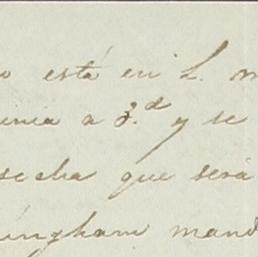 o está en L. m
a 3.d y se
secha que será
ingham mand